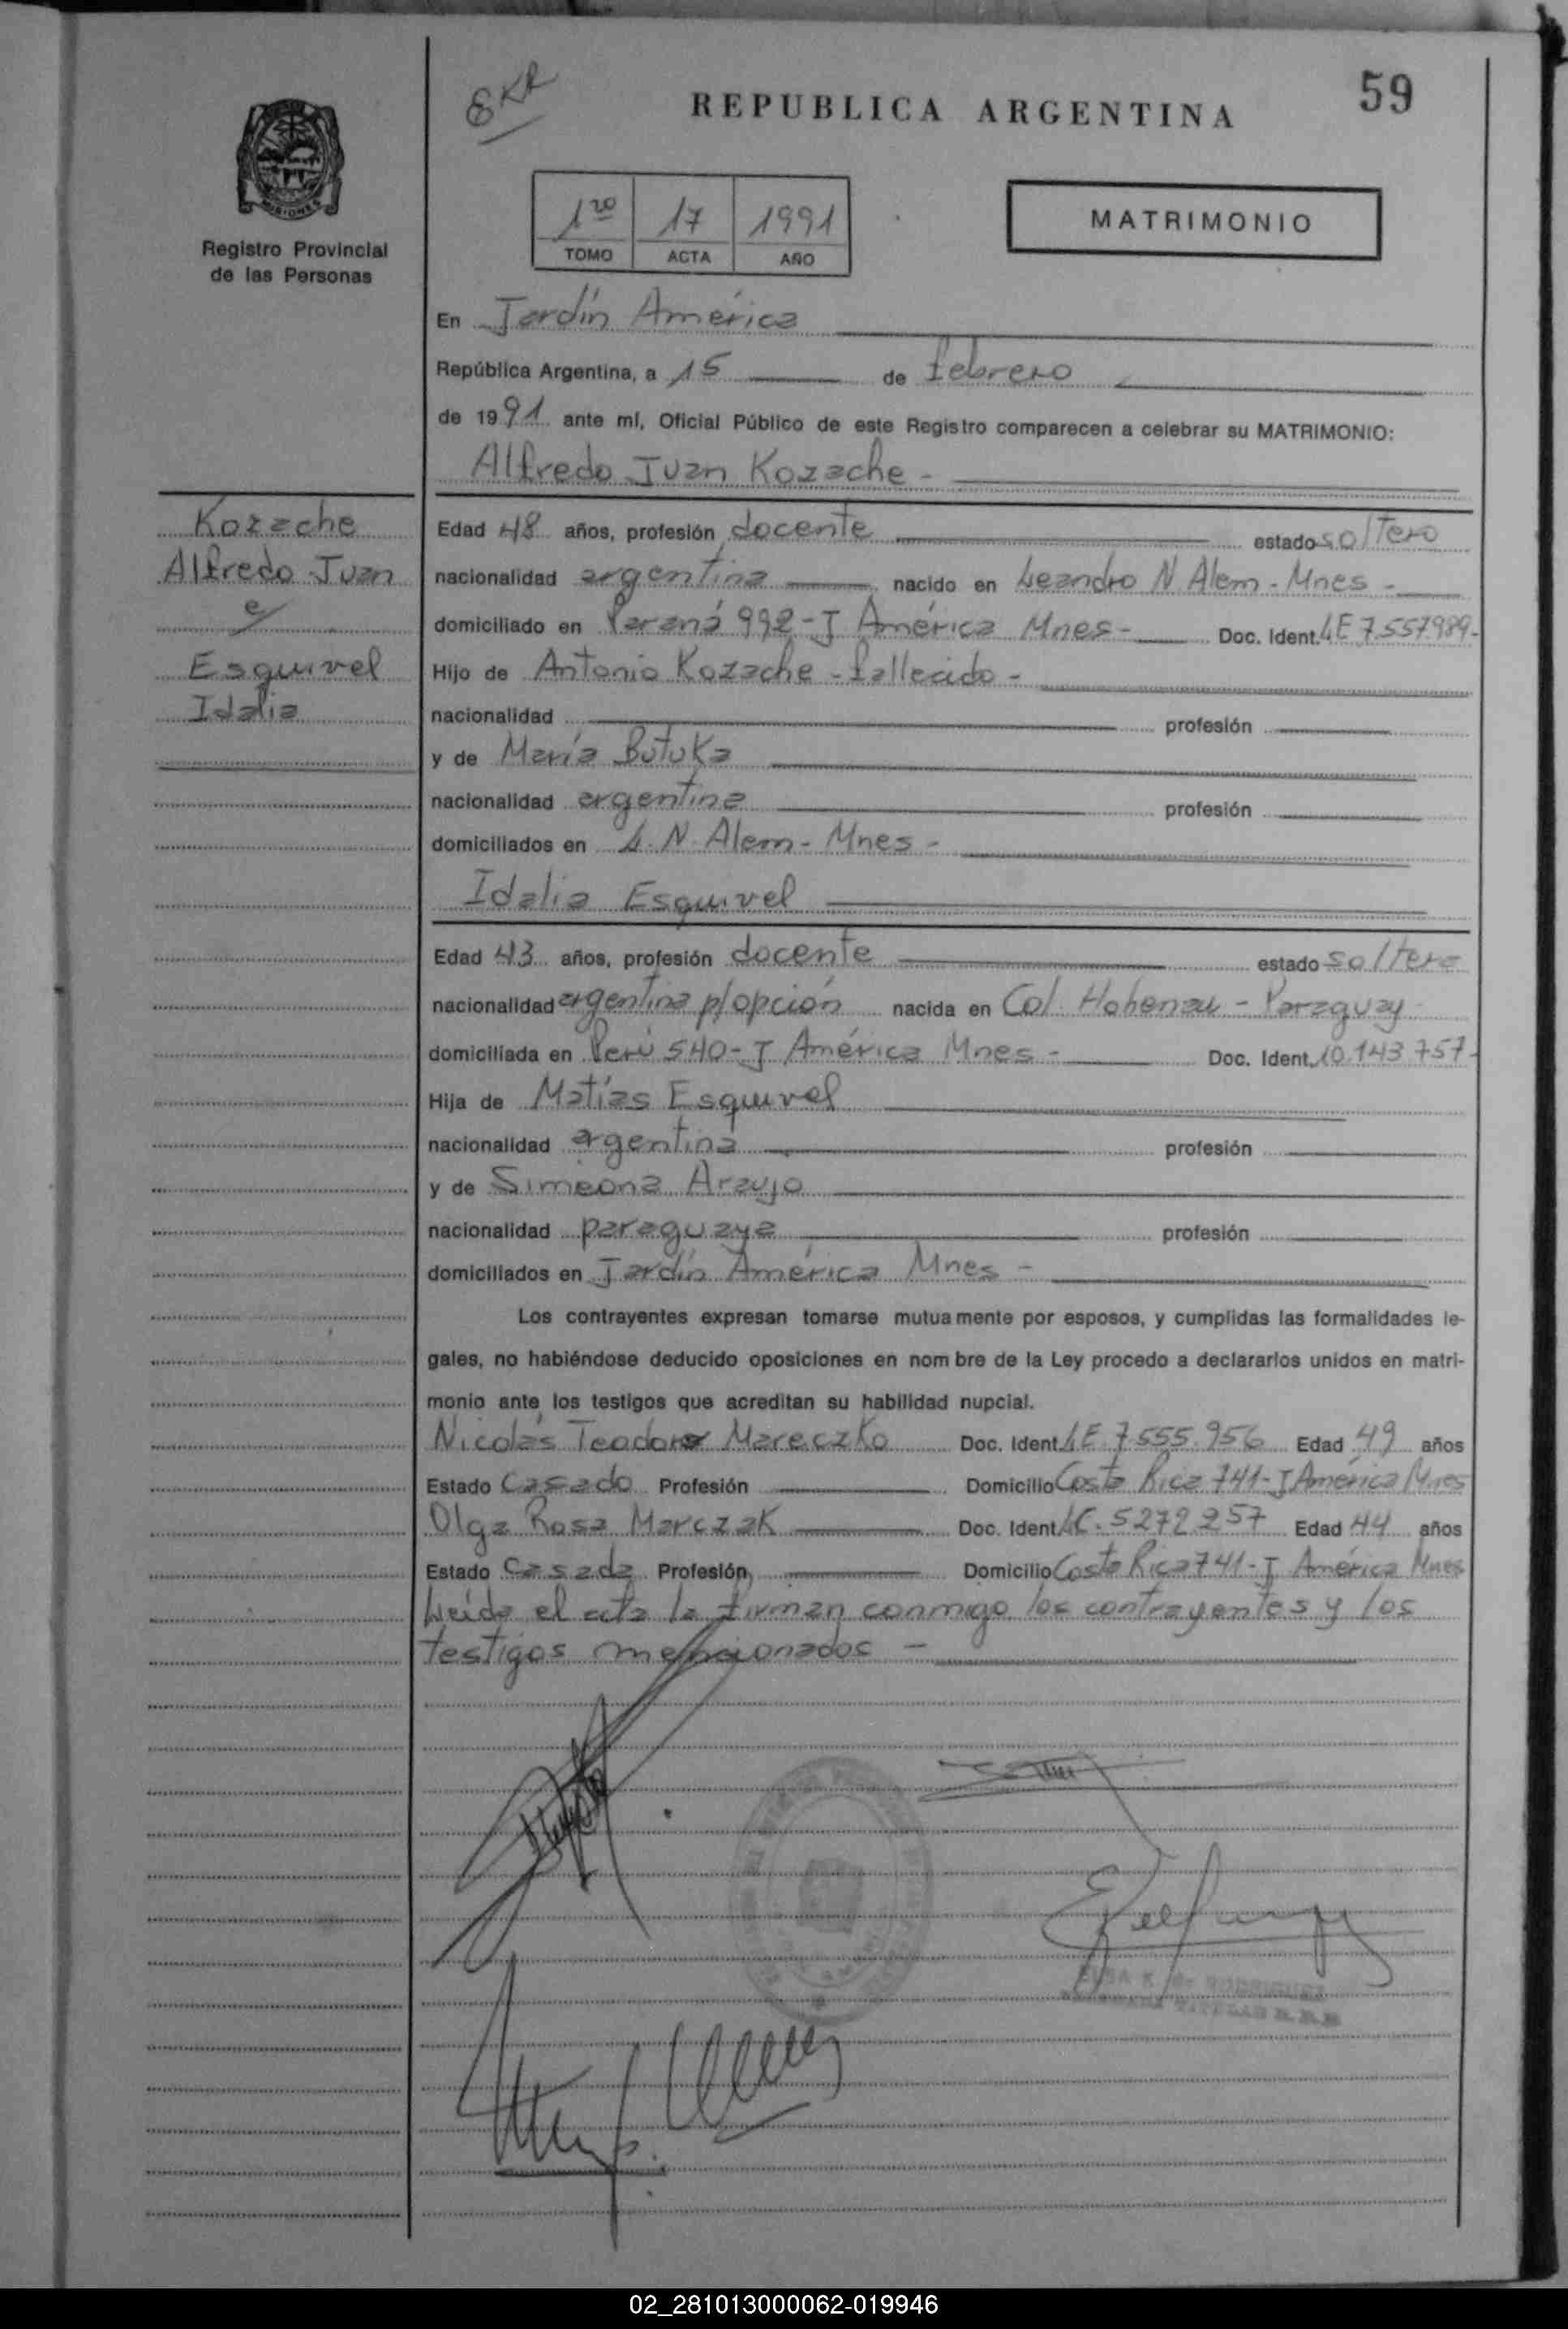 EKR
REPUBLICA ARGENTINA
59
MISIONES
Registro Provincial
de las Personas
1ro 17 1991
TOMO ACTA AÑO
MATRIMONIO
En Jardín América
República Argentina, a 15 de febrero
de 1991 ante mí, Oficial Público de este Registro comparecen a celebrar su MATRIMONIO:
Alfredo Juan Kozache -
Kozache
Alfredo Juan
c/
Esquivel
Idalia
Edad 48 años, profesión docente estado soltero
nacionalidad argentina nacido en Leandro N Alem - Mnes -
domiciliado en Paraná 992 - J América Mnes - Doc. Ident. LE 7.557.989-
Hijo de Antonio Kozache - fallecido -
nacionalidad profesión
y de María Butuka
nacionalidad argentina profesión
domiciliados en L. N. Alem - Mnes -
Idalia Esquivel
Edad 43 años, profesión docente estado soltera
nacionalidad argentina p/opción nacida en Col. Hohenau - Paraguay
domiciliada en Perú 540 - J América Mnes - Doc. Ident. 10.143.757-
Hija de Matías Esquivel
nacionalidad argentina profesión
y de Simeona Araujo
nacionalidad paraguaya profesión
domiciliados en Jardín América Mnes -
Los contrayentes expresan tomarse mutuamente por esposos, y cumplidas las formalidades le-
gales, no habiéndose deducido oposiciones en nombre de la Ley procedo a declararlos unidos en matri-
monio ante los testigos que acreditan su habilidad nupcial.
Nicolás Teodoro Mareczko Doc. Ident. LE 7.555.956 Edad 49 años
Estado Casado Profesión Domicilio Costa Rica 741 - J América Mnes
Olga Rosa Marczak Doc. Ident. LC. 5.272.257 Edad 44 años
Estado Casada Profesión Domicilio Costa Rica 741 - J América Mnes
Leída el acta la firman conmigo los contrayentes y los
testigos mencionados -
K. de RODRIGUEZ
TITULAR
02_281013000062-019946